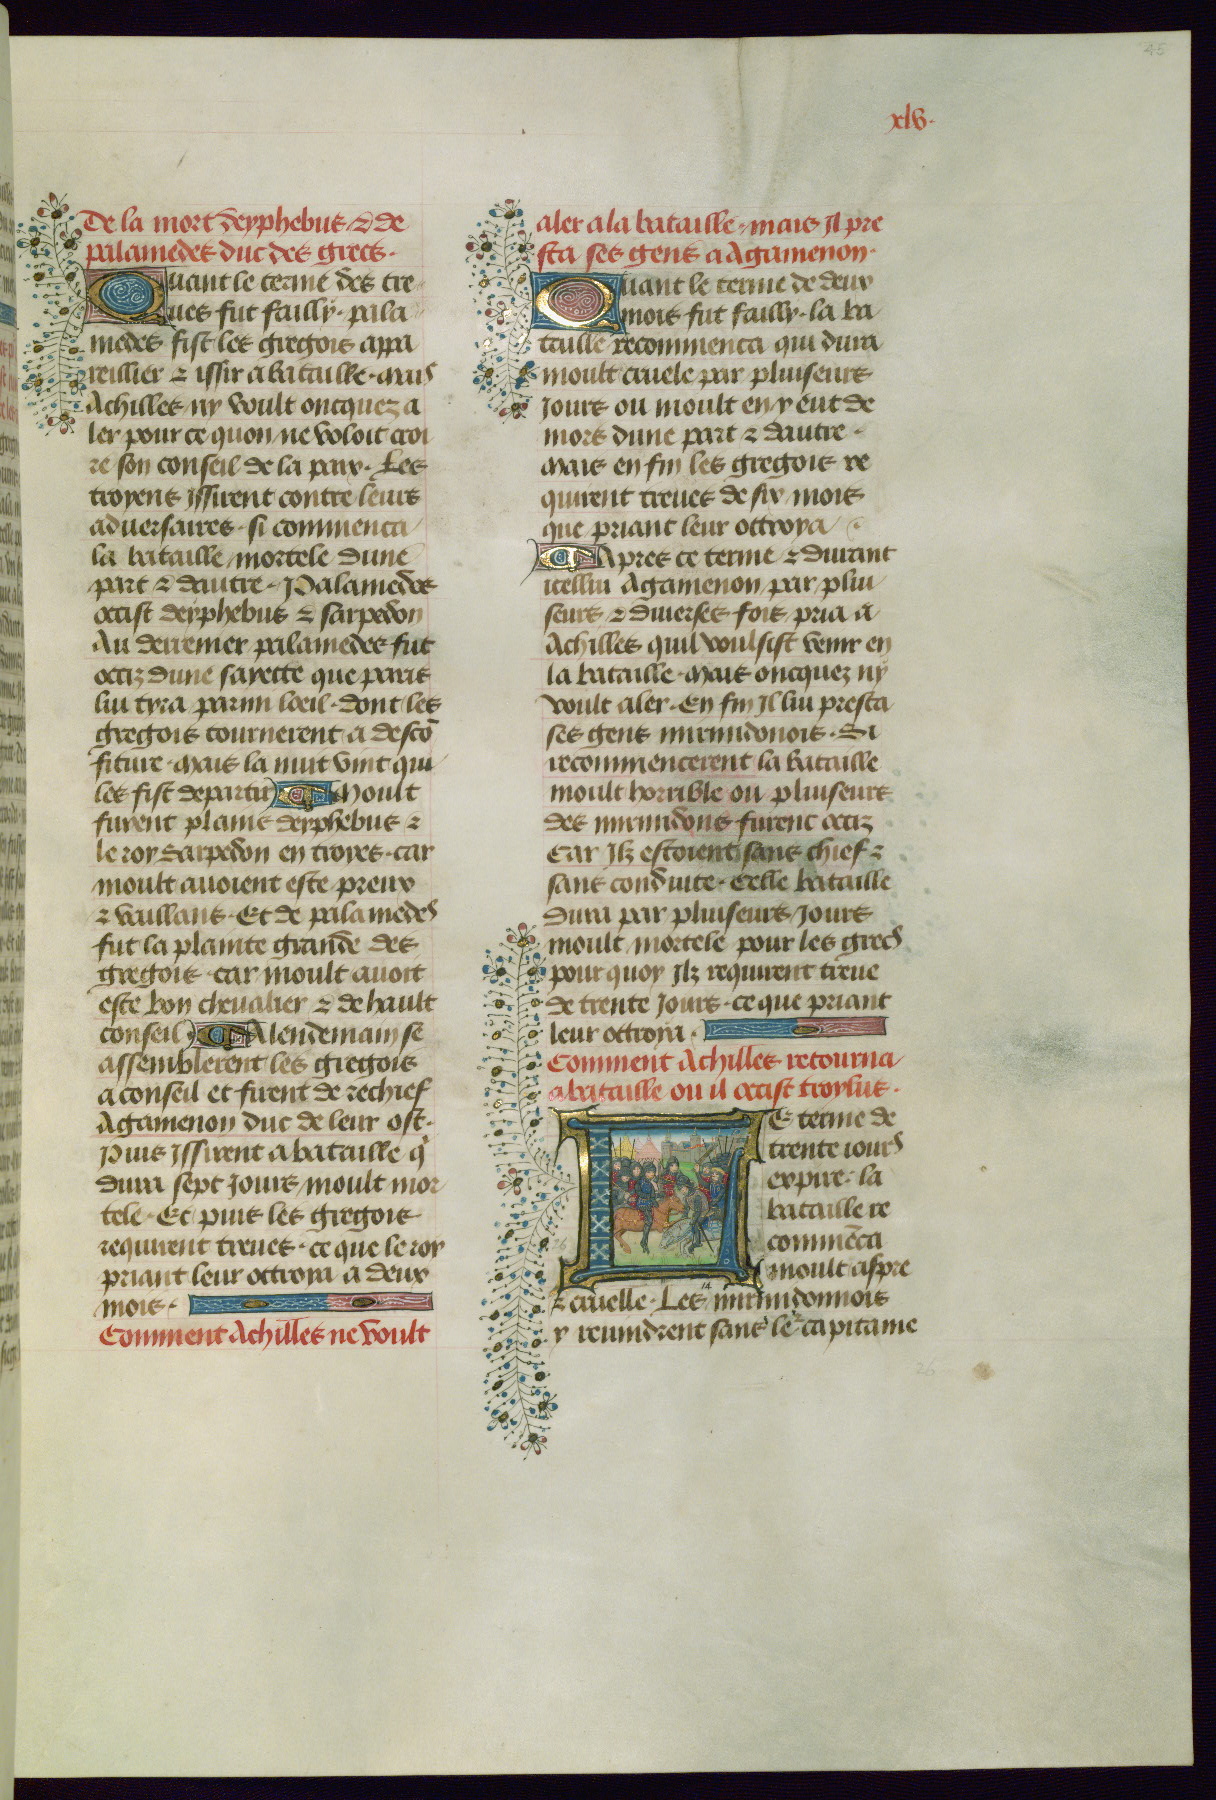 45
xlv·
De la mort deyphebus / & de
palamedes duc des grecs·
Quant le terme des tre
ues fut failly· pala
medes fist les gregois appa
reillier & issir a bataille· mais
Achilles ny voult oncquez a
ler pour ce quon ne voloit croi
re son conseil de la paix· Les
troyens Jssirent contre leurs
aduersaires· si commenca
la bataille mortele dune
part & dautre· Palamedes
occist deyphebus & sarpedon
Au derrenier palamedes fut
occiz dune sayette que paris
lui tyra parmi loeil· dont les
gregois tournerent a descō
fiture· mais la nuit vint qui
les fist departir Moult
furent plains deyphebus &
le roy Sarpedon en troyes· car
moult auoient este preux
& vaillans· Et de palamedes
fut la plainte grande des
gregois· car moult auoit
este bon chevalier & de hault
conseil· A lendemain se
assemblerent les gregois
a conseil et firent de rechief
Agamenon duc de leur ost·
Puis Jssirent a bataille q̄
dura sept Jours moult mor
tele· Et puis les gregois
requirent treues· ce que le roy
priant leur octroya a deux
mois·
Comment Achilles ne voult
aler a la bataille· mais Jl pre
sta ses gens a Agamenon·
Quant le terme de deux
mois fut failly· la ba
taille recommenca qui dura
moult cruele par pluiseurs
Jours ou moult en y eut de
mors dune part & dautre·
Mais en fin les gregois re
quirent treues de six mois
que priant leur octroya
Apres ce terme & durant
icellui Agamenon par plui
seurs & diuerses fois pria a
Achilles quil voulsist venir en
la bataille· Mais oncquez ny
voult aler· En fin Jl lui presta
ses gens mirmidonois· Si
recommencerent la bataille
moult horrible ou pluiseurs
des mirmidons furent occiz
Car Jlz estoient sans chief &
sans conduite· Celle bataille
dura par pluiseurs Jours
moult mortele pour les grecs
pour quoy Jlz requirent treue
de trente Jours· ce que priant
leur octroya·
Comment Achilles retourna
a bataille ou il occist troylus·
Le terme de
trente iours
expire· la
bataille re
commēca
moult aspre
& cruelle· Les mirmidonnois
y reuindrent sans le capitaine
26